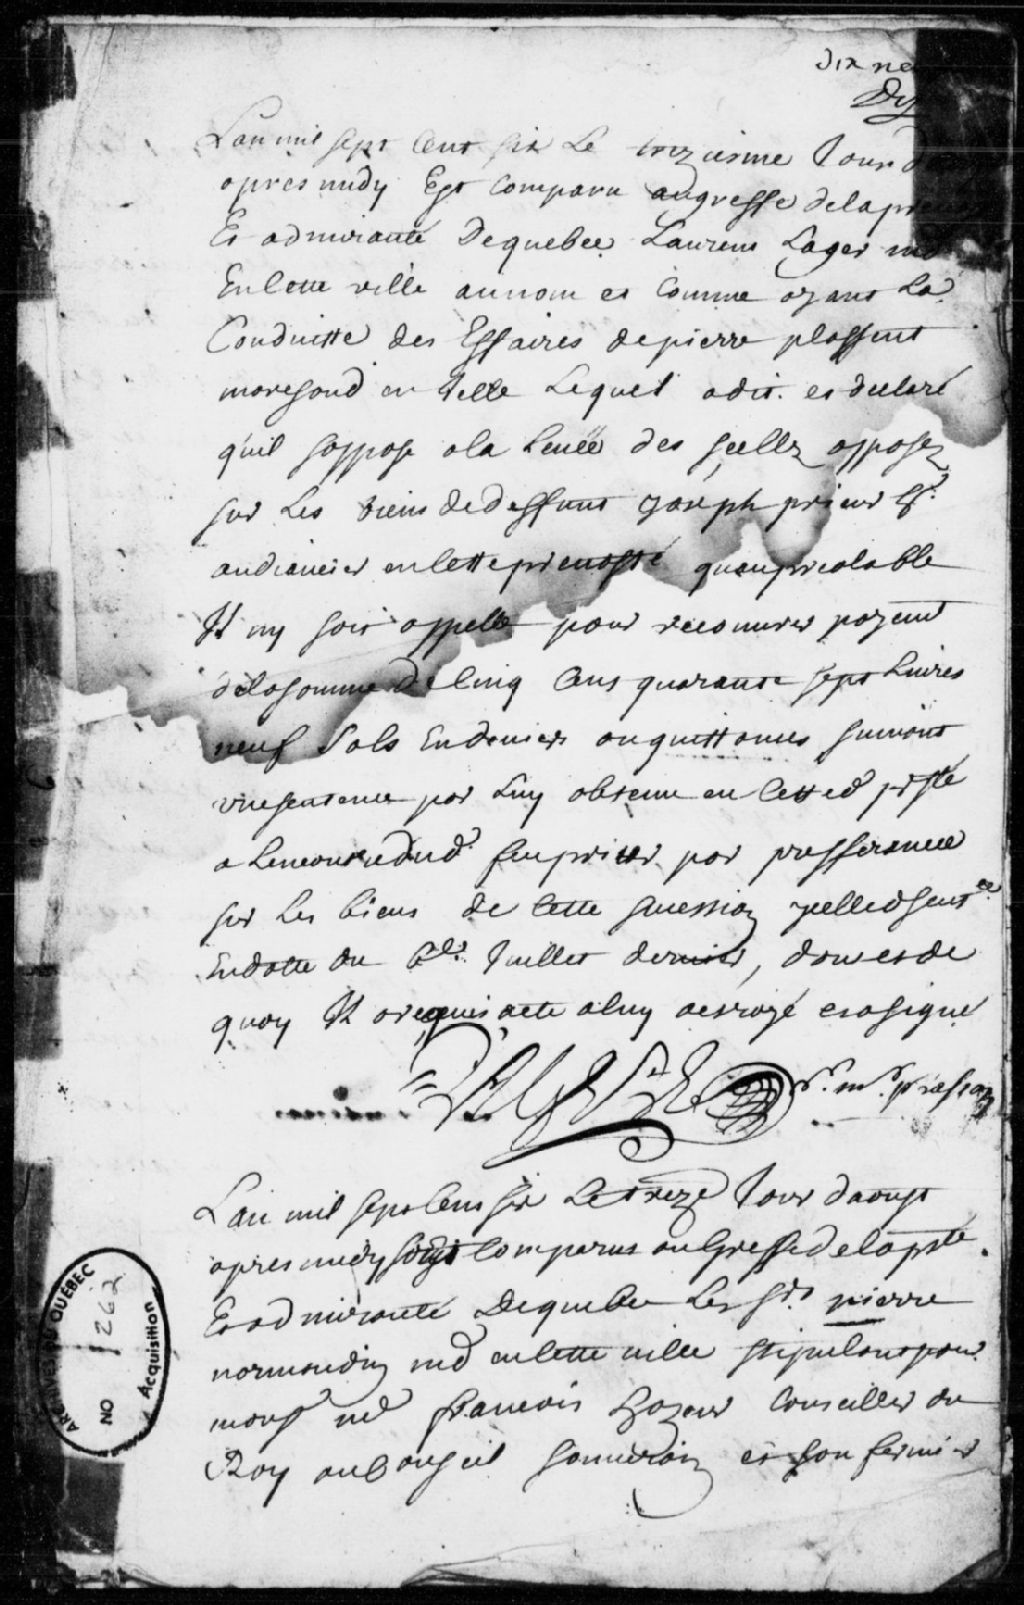 dix ne
L'an mil sept Cent six Le treiziesme Jour d
apres midy Est Comparu au greffe de la prevo
Et admirauté De quebec Laurens Lager md
En Cette ville au nom et Comme ayant La
Conduitte des Effaires de pierre plassent
marchand en Icelle Lequel a dit et declaré
quil soppose a la Levée des scellez apposez
sur Les biens de deffunt Joseph prieur hr
audiancier en Cette prevosté quau prealable
Il ny soit appellé pour recouvrer payemt
de la somme De Cinq Cens quarante sept Livres
neuf Sols En deniers ou quittances suivant
une sentence par Luy obtenu en Cetted. psté
a Lencontre dud. feu prieur par prefferance
sur Les biens de Cette succession Icelled. sentce
En datte du Juillet dernier, dont et de
quoy Il a requis acte a luy octroyé et a signé
L'an mil sept Cens six Le treize Jour d'aoust
apres midy sont Comparus au Greffe de la psté
Et admirauté De quebec Les Srs pierre
normandin md en Cette ville stipulant pour
monsr me francois hazeur Conseiller du
Roy au Conseil souverain et son fermier
ARCHIVES DU QUÉBEC
NO 1262
Acquisition